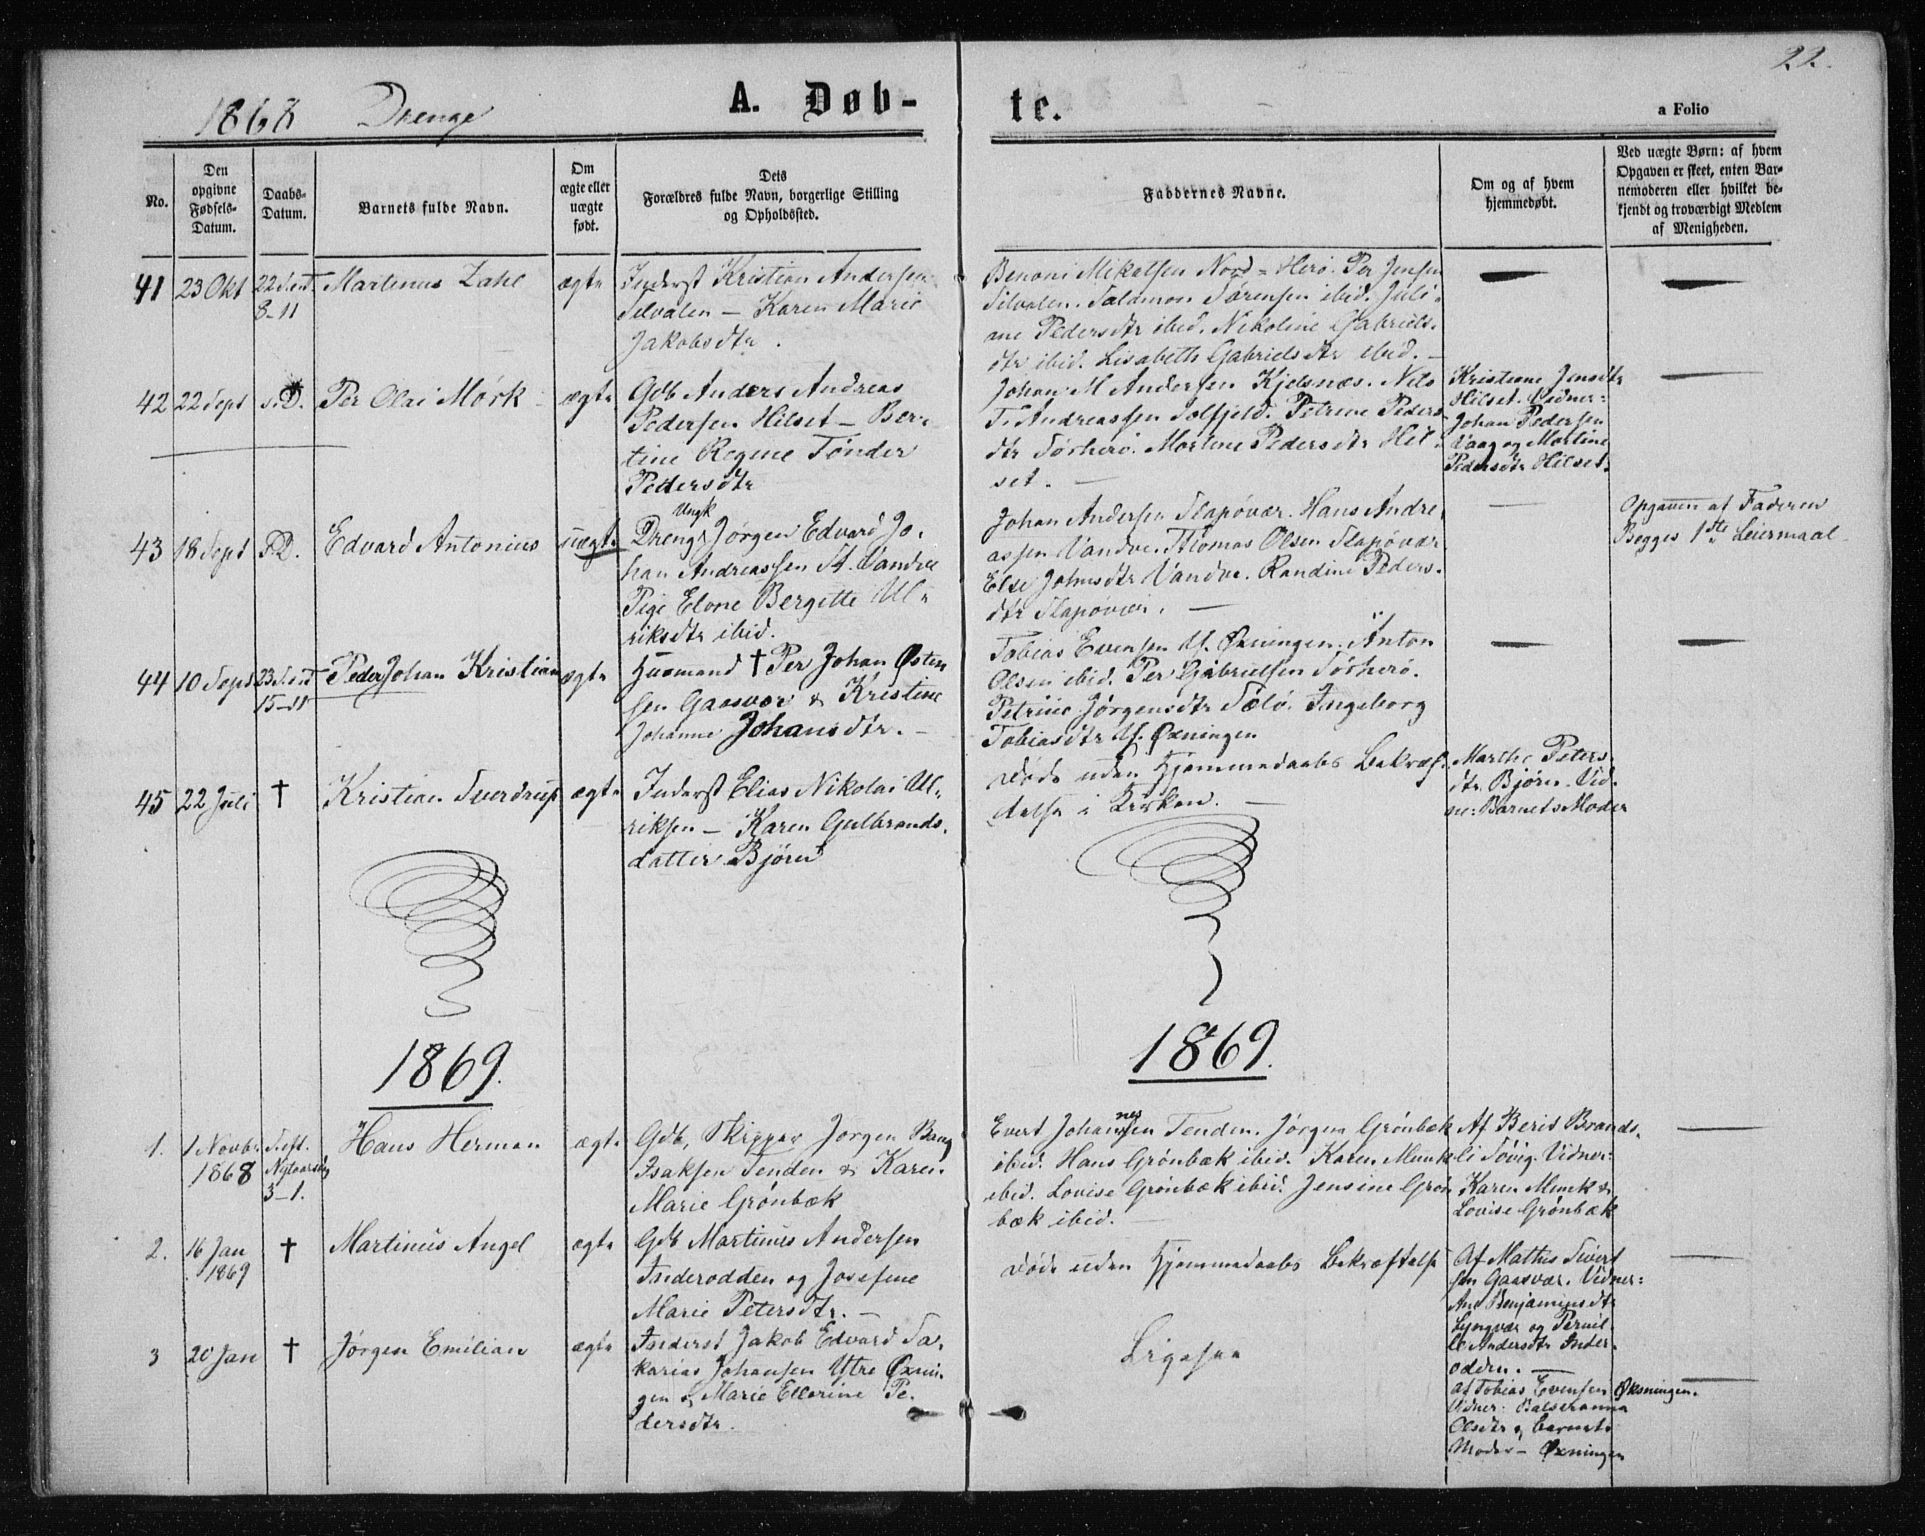 22.
1868 Drenge
A. Døb-
te.
a Folio
No.
Den
opgivne
Fødsels-
Datum.
Daabs-
Datum.
Barnets fulde Navn.
Om
ægte eller
uægte
født.
Dets
Forældres fulde Navn, borgerlige Stilling
og Opholdssted.
Faddernes Navne.
Om og af hvem
hjemmedøbt.
Ved uægte Børn: af hvem
Opgaven er skeet, enten Bar-
nemoderen eller hvilket be-
kjendt og troværdigt Medlem
af Menigheden.
41
23 Okt
8-11
Martinus Zahl
ægte
Inderst Kristian Andersen
Silvalen - Karen Marie
Jakobsdtr.
Benoni Mikalsen Nord-Herö. Per Jensen
Silvalen. Salamon Sørensen ibid. Juli-
ane Pedersdtr ibid. Nikoline Gabriels-
dtr ibid. Lisabeth Gabrielsdtr ibid. -
42
22 Sept
s.D.
Per Olai Mörk
ægte
Gdb Anders Andreas
Pedersen Hilset - Ber-
tine Regine Tönder
Pedersdtr
Johan M Andersen Kjelsnæs. Nils
T. Andreassen Solfjeld. Petrine Peders-
dtr Sörherö. Martine Pedersdtr Hil-
set. -
Kristiane Jensdtr
Hilset. Vidner:
Johan Pedersen
Vaag og Martine
Pedersdtr Hilset.
43
18 Sept
s.D.
Edvard Antonius
uægte
Ungk
Dreng Jørgen Edvard Jo-
han Andreassen St. Vandve
Pige Elone Bergitte Ul-
riksdtr ibid.
Johan Andersen Slapøvær. Hans Andre-
assen Vandve. Thomas Olsen Slapøvær
Else Johnsdtr Vandve. Randine Peders-
dtr Slapøvær. -
Opgaven af Faderen
Begges 1ste Leiermaal
44
10 Sept
15-11
Peder Johan Kristian
ægte
Husmand † Per Johan Østen
sen Gaasvær & Kristine
Johanne Johansdtr. -
Tobias Evensen Y. Øxningen. Anton
Olsen ibid. Per Gabrielsen Sörherö.
Petrine Jörgensdtr Tælö. Ingeborg
Tobiasdtr Y. Øxningen
45
22 Juli
†
Kristian Sverdrup
ægte
Inderst Elias Nikolai Ul-
riksen - Karen Gulbrands-
datter Björn
Döde uden Hjemmedaabs Bekræf-
telse i Kirken. -
Marthe Peters-
dtr Björn. Vid-
ne: Barnets Moder
1869.
1869.
1.
1 Novbr
1868
S. eft.
Nytaarsdg
3-1.
Hans Herman
ægte
Gdb, Skipper Jørgen Bang
Isaksen Tenden & Karen
Marie Grönbæk
Evert Johannessen Tenden. Jörgen Grönbæk
ibid. Hans Grönbæk ibid. Karen Munk
ibid. Lovise Grönbæk ibid. Jensine Grön
bæk ibid. -
Af Berit Brands-
li Søvig. Vidner:
Karen Munk &
Lovise Grönbæk
2.
16 Jan
1869
†
Martinus Angel
ægte
Gdb Martinus Andersen
Inderodden og Josefine
Marie Petersdtr. -
Döde uden Hjemmedaabs Bekræftelse
Af Mathis Sivert
sen Gaasvær. Vidner:
Ane Benjaminsdtr
Lyngvær og Pernil-
le Andersdtr Inder-
odden. -
3
20 Jan
†
Jörgen Emilian
ægte
Inderst Jakob Edvard Sa-
karias Johansen Ytre Øxnin-
gen & Marie Ellerine Pe-
dersdtr.
Ligesaa
Af Tobias Evensen Øksningen.
Vidner:
Olsdtr & barnets
Moder - Øxningen